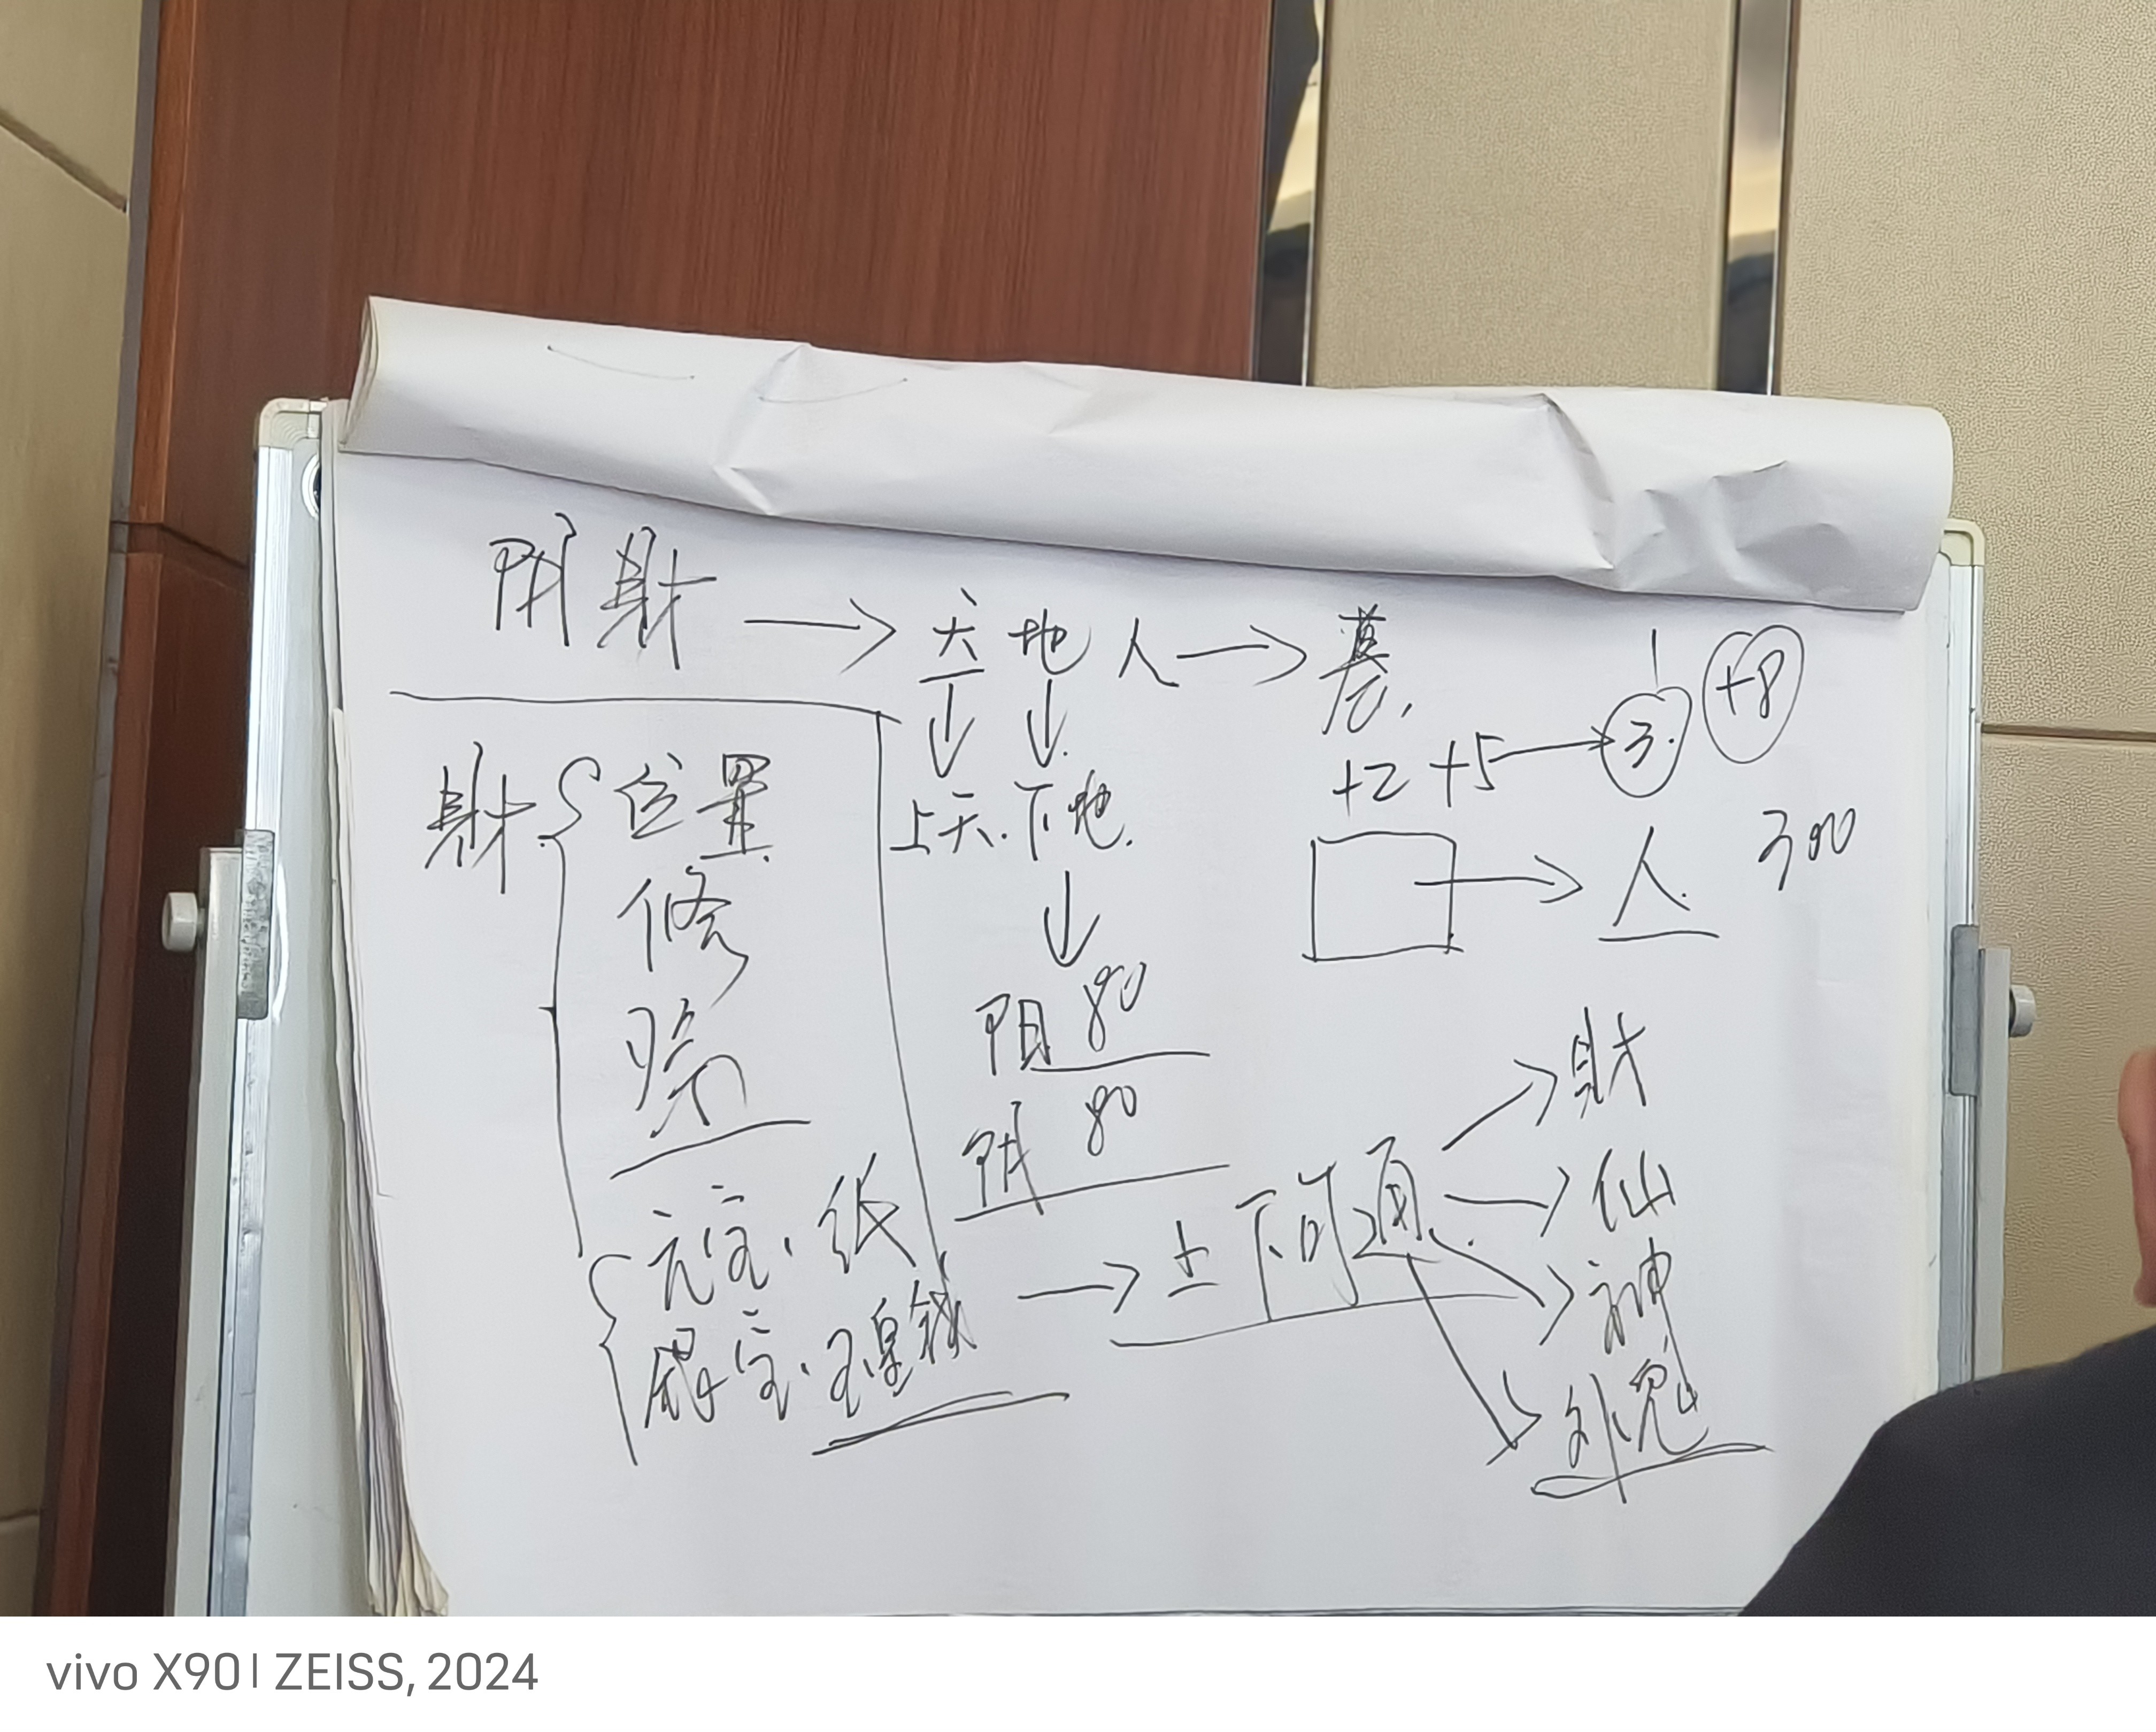 阴財 → 天 地 人 → 墓
↓ ↓
+2 +5 → 3. +8
財 { 位置
上天. 下地.
□ → 人. 300
修
↓
阳 80
80
元宝、纸
→ 上下可通 → 財
→ 仙
→ 神
→ 外鬼
银宝、玉皇钱
vivo X90 | ZEISS, 2024